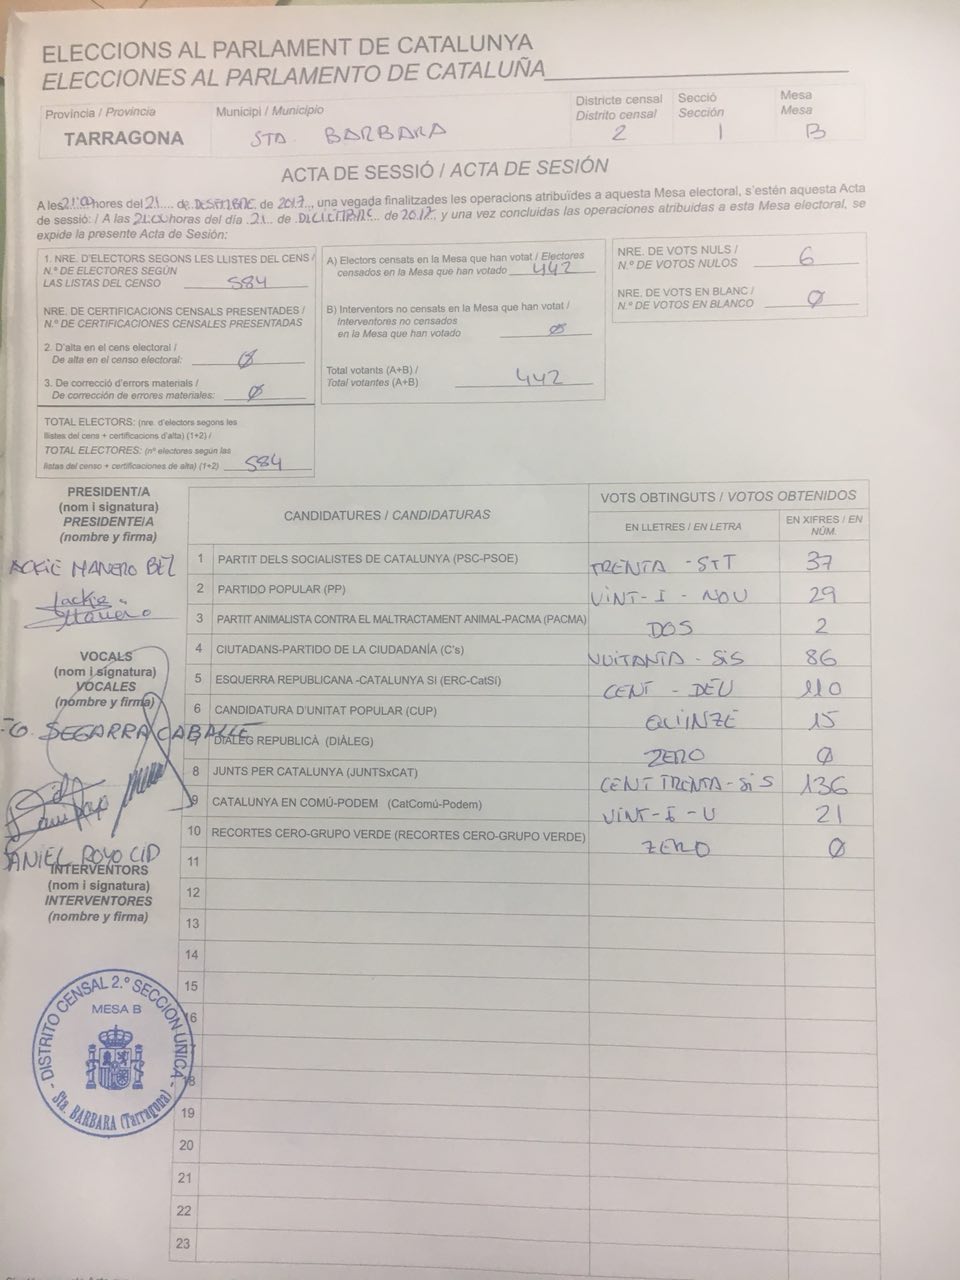 ELECCIONS AL PARLAMENT DE CATALUNYA
ELECCIONES AL PARLAMENTO DE CATALUÑA
Província / Provincia
TARRAGONA
Municipi / Municipio
STA. BARBARA
Districte censal
Distrito censal
2
Secció
Sección
1
Mesa
Mesa
B
ACTA DE SESSIÓ / ACTA DE SESIÓN
A les 21:00 hores del 21 de DESEMBRE de 2017, una vegada finalitzades les operacions atribuïdes a aquesta Mesa electoral, s'estén aquesta Acta
de sessió: / A las 21:00 horas del día 21 de DICIEMBRE de 2017, y una vez concluidas las operaciones atribuidas a esta Mesa electoral, se
expide la presente Acta de Sesión:
1. NRE. D'ELECTORS SEGONS LES LLISTES DEL CENS /
N.º DE ELECTORES SEGÚN
LAS LISTAS DEL CENSO 584
NRE. DE CERTIFICACIONS CENSALS PRESENTADES /
N.º DE CERTIFICACIONES CENSALES PRESENTADAS
2. D'alta en el cens electoral /
De alta en el censo electoral: 0
3. De correcció d'errors materials /
De corrección de errores materiales: 0
TOTAL ELECTORS: (nre. d'electors segons les
llistes del cens + certificacions d'alta) (1+2) /
TOTAL ELECTORES: (nº electores según las
listas del censo + certificaciones de alta) (1+2) 584
A) Electors censats en la Mesa que han votat / Electores
censados en la Mesa que han votado 442
B) Interventors no censats en la Mesa que han votat /
Interventores no censados
en la Mesa que han votado 0
Total votants (A+B) /
Total votantes (A+B) 442
NRE. DE VOTS NULS /
N.º DE VOTOS NULOS 6
NRE. DE VOTS EN BLANC /
N.º DE VOTOS EN BLANCO 0
PRESIDENT/A
(nom i signatura)
PRESIDENTE/A
(nombre y firma)
ACKIE MANERO BEL
Jackie
Manero
VOCALS
(nom i signatura)
VOCALES
(nombre y firma)
SEGARRA CABALLÉ
ANIEL ROYO CID
INTERVENTORS
(nom i signatura)
INTERVENTORES
(nombre y firma)
CANDIDATURES / CANDIDATURAS
VOTS OBTINGUTS / VOTOS OBTENIDOS
EN LLETRES / EN LETRA
EN XIFRES / EN
NÚM.
1 PARTIT DELS SOCIALISTES DE CATALUNYA (PSC-PSOE) TRENTA - SET 37
2 PARTIDO POPULAR (PP) VINT-I-NOU 29
3 PARTIT ANIMALISTA CONTRA EL MALTRACTAMENT ANIMAL-PACMA (PACMA) DOS 2
4 CIUTADANS-PARTIDO DE LA CIUDADANÍA (C's) VUITANTA - SIS 86
5 ESQUERRA REPUBLICANA -CATALUNYA SÍ (ERC-CatSí) CENT - DEU 110
6 CANDIDATURA D'UNITAT POPULAR (CUP) QUINZE 15
7 DIÀLEG REPUBLICÀ (DIÀLEG) ZERO 0
8 JUNTS PER CATALUNYA (JUNTSxCAT) CENT TRENTA-SIS 136
9 CATALUNYA EN COMÚ-PODEM (CatComú-Podem) VINT-I-U 21
10 RECORTES CERO-GRUPO VERDE (RECORTES CERO-GRUPO VERDE) ZERO 0
11
12
13
14
15
16
17
18
19
20
21
22
23
DISTRITO CENSAL 2.º SECCION UNICA
MESA B
Sta. BARBARA (Tarragona)